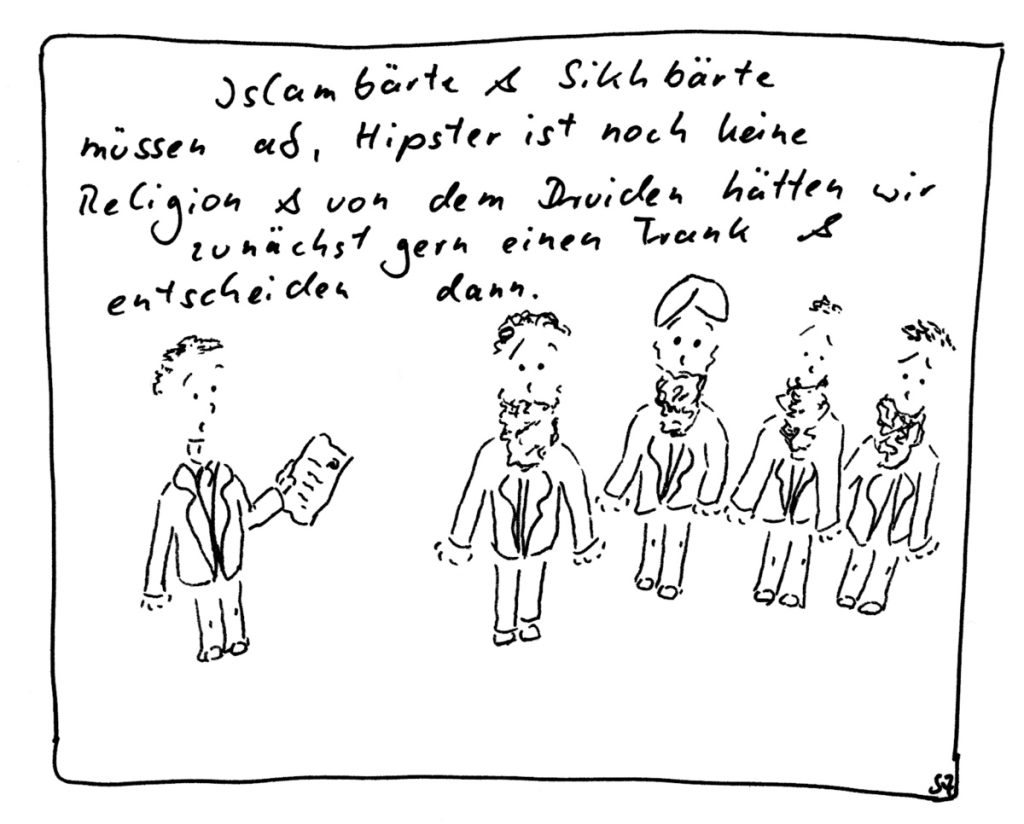 Islambärte & Sikhbärte
müssen ab, Hipster ist noch keine
Religion & von dem Druiden hätten wir
zunächst gern einen Trank &
entscheiden dann.
SZ